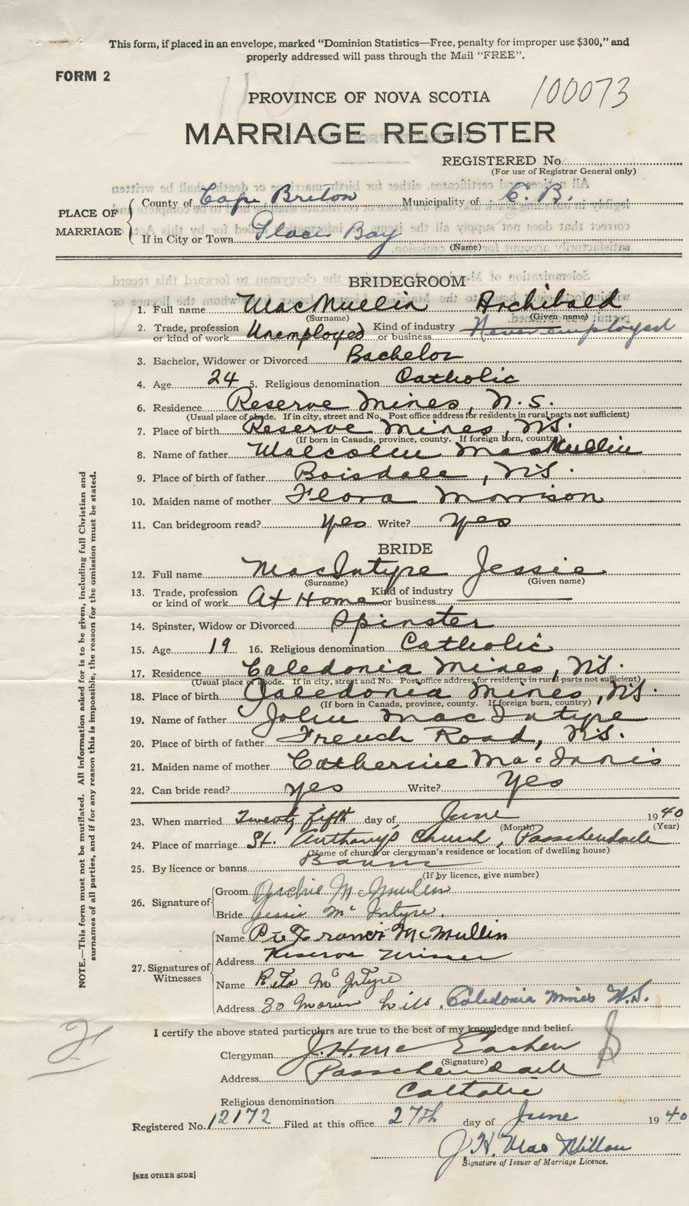 This form, if placed in an envelope, marked "Dominion Statistics—Free, penalty for improper use $300," and
properly addressed will pass through the Mail "FREE".
FORM 2
100073
PROVINCE OF NOVA SCOTIA
MARRIAGE REGISTER
REGISTERED No.
(For use of Registrar General only)
PLACE OF MARRIAGE
County of Cape Breton Municipality of C. B.
If in City or Town Glace Bay
(Name)
BRIDEGROOM
1. Full name MacMullin Archibald
(Surname) (Given name)
2. Trade, profession or kind of work Unemployed Kind of industry or business Never employed
3. Bachelor, Widower or Divorced Bachelor
4. Age 24 5. Religious denomination Catholic
6. Residence Reserve Mines, N.S.
(Usual place of abode. If in city, street and No. Post office address for residents in rural parts not sufficient)
7. Place of birth Reserve Mines, N.S.
(If born in Canada, province, county. If foreign born, country)
8. Name of father Malcolm MacMullin
9. Place of birth of father Boisdale, N.S.
10. Maiden name of mother Flora Morrison
11. Can bridegroom read? yes Write? yes
BRIDE
12. Full name MacIntyre Jessie
(Surname) (Given name)
13. Trade, profession or kind of work At Home Kind of industry or business
14. Spinster, Widow or Divorced Spinster
15. Age 19 16. Religious denomination Catholic
17. Residence Caledonia Mines, N.S.
(Usual place of abode. If in city, street and No. Post office address for residents in rural parts not sufficient)
18. Place of birth Caledonia Mines, N.S.
(If born in Canada, province, county. If foreign born, country)
19. Name of father John MacIntyre
20. Place of birth of father French Road, N.S.
21. Maiden name of mother Catherine MacInnis
22. Can bride read? yes Write? Yes
23. When married Twenty fifth day of June 1940
(Month) (Year)
24. Place of marriage St. Anthony's Church, Passchendaele
(Name of church or clergyman's residence or location of dwelling house)
25. By licence or banns Banns
(If by licence, give number)
26. Signature of
Groom Archie McMullin
Bride Jessie McIntyre.
27. Signatures of Witnesses
Name Pte Francis McMullin
Address Reserve Mines
Name Rita McIntyre
Address 30 Moran hill. Caledonia Mines N.S.
I certify the above stated particulars are true to the best of my knowledge and belief.
Clergyman J.H. McEachen
(Signature)
Address Passchendaele
Religious denomination Catholic
Registered No. 12172 Filed at this office 27th day of June 1940
J. H. MacMillan
Signature of Issuer of Marriage Licence.
[SEE OTHER SIDE]
NOTE.—This form must not be mutilated. All information asked for is to be given, including full Christian and
surnames of all parties, and if for any reason this is impossible, the reason for the omission must be stated.